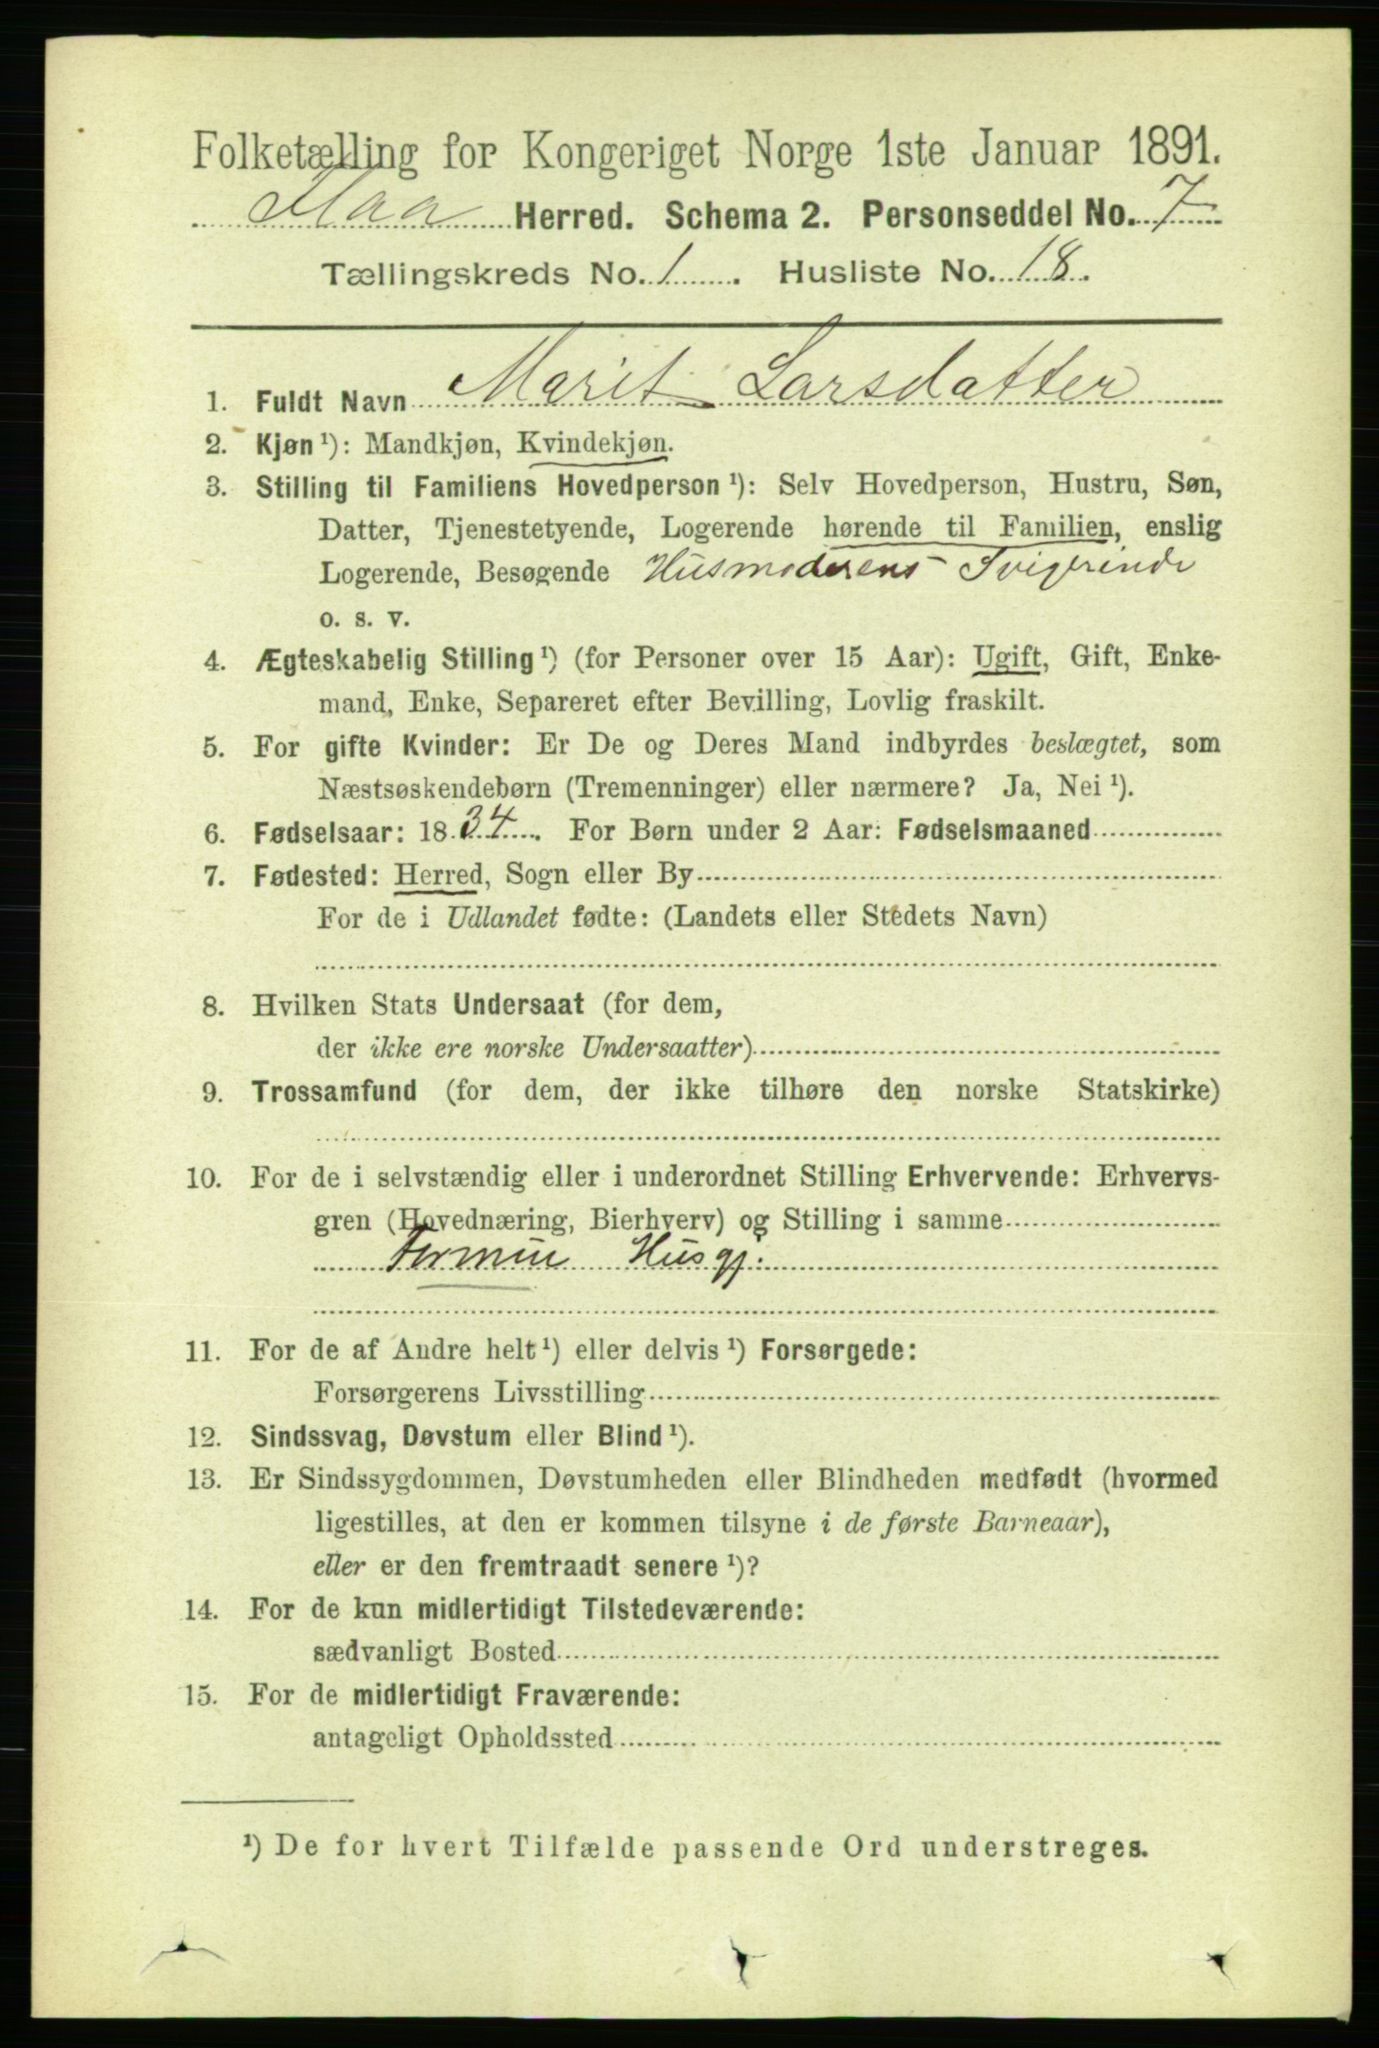 Folketælling for Kongeriget Norge 1ste Januar 1891.
Flaa Herred. Schema 2. Personseddel No. 7
Tællingskreds No. 1. Husliste No. 18.
1. Fuldt Navn Marit Larsdatter
2. Kjøn¹): Mandkjøn, Kvindekjøn.
3. Stilling til Familiens Hovedperson¹): Selv Hovedperson, Hustru, Søn,
Datter, Tjenestetyende, Logerende hørende til Familien, enslig
Logerende, Besøgende Husmoderens Svigerinde
o. s. v.
4. Ægteskabelig Stilling¹) (for Personer over 15 Aar): Ugift, Gift, Enke-
mand, Enke, Separeret efter Bevilling, Lovlig fraskilt.
5. For gifte Kvinder: Er De og Deres Mand indbyrdes beslægtet, som
Næstsøskendebørn (Tremenninger) eller nærmere? Ja, Nei¹).
6. Fødselsaar: 1834. For Børn under 2 Aar: Fødselsmaaned
7. Fødested: Herred, Sogn eller By
For de i Udlandet fødte: (Landets eller Stedets Navn)
8. Hvilken Stats Undersaat (for dem,
der ikke ere norske Undersaatter)
9. Trossamfund (for dem, der ikke tilhøre den norske Statskirke)
10. For de i selvstændig eller i underordnet Stilling Erhvervende: Erhvervs-
gren (Hovednæring, Bierhverv) og Stilling i samme
Husgj.
11. For de af Andre helt¹) eller delvis¹) Forsørgede:
Forsørgerens Livsstilling
12. Sindssvag, Døvstum eller Blind¹).
13. Er Sindssygdommen, Døvstumheden eller Blindheden medfødt (hvormed
ligestilles, at den er kommen tilsyne i de første Barneaar),
eller er den fremtraadt senere¹)?
14. For de kun midlertidigt Tilstedeværende:
sædvanligt Bosted
15. For de midlertidigt Fraværende:
antageligt Opholdssted
¹) De for hvert Tilfælde passende Ord understreges.